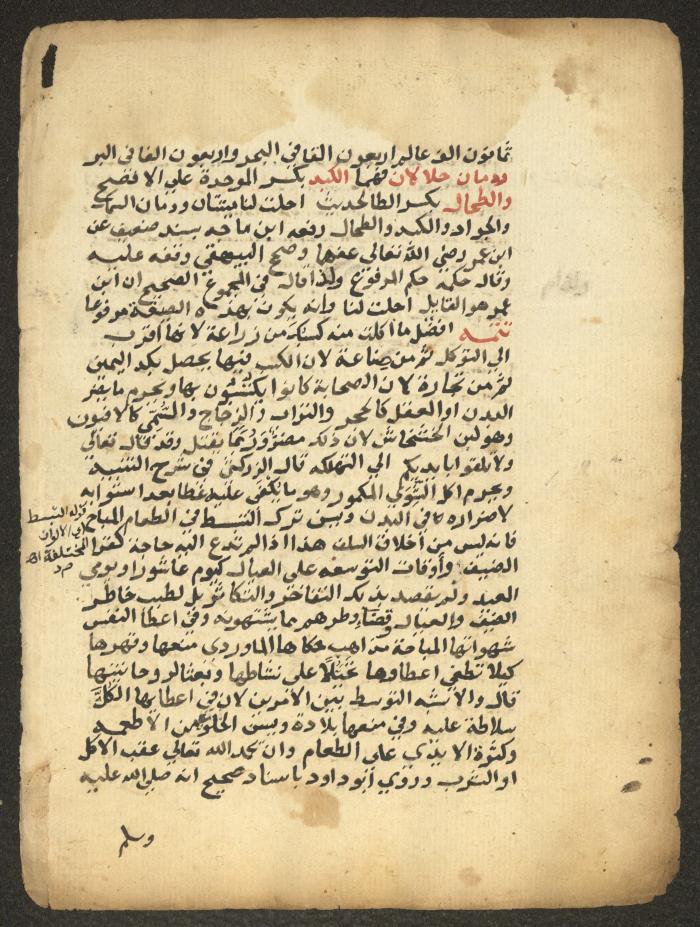 ثمانون الف عالم اربعون الفا في البحر واربعون الفا في البر
ودمان حلالان فهما الكبد بكسر الموحدة على الافصح
والطحال بكسر الطا لحديث احلت لنا ميتتان ودمان السمك
والجراد والكبد والطحال رفعه ابن ماجه بسند ضعيف عن
ابن عمر رضي الله تعالى عنهما وصحح البيهقي وقفه عليه
وقال حكمه حكم المرفوع ولذا قال في المجموع الصحيح ان ابن
عمر هو القايل احلت لنا وانه يكون بهذه الصيغة مرفوعا
تتمه افضل ما اكلت منه كسبك من زراعة لانها اقرب
الى التوكل ثم من صناعة لان الكسب فيها يحصل بكد اليمين
ثم من تجارة لان الصحابة كانوا يكتسبون بها ويحرم ما يضر
البدن او العقل كالحجر والتراب والزجاج والسم كالافيون
وهو لبن الخشخاش لان ذلك مضر وربما يقتل وقد قال تعالى
ولا تلقوا بايديكم الى التهلكه قال الزركشي في شرح التنبيه
ويحرم اكل الشوي المكمور وهو ما يكفى عليه غطا بعد استوايه
لاضراره بالبدن ويسن ترك التبسط في الطعام المباح
فانه ليس من اخلاق السلف هذا اذا لم تدع اليه حاجة كقرا
الضيف واوقات التوسعه على العيال كيوم عاشورا ويومي
العيد ولم يقصد بذلك التفاخر والتكاثر بل لطيب خاطر
الضيف والعيال وقضا وطرهم مما يشتهونه وفي اعطا النفس
شهواتها المباحة مذاهب حكاها الماوردي منعها وقهرها
كيلا تطغى اعطاوها تحيلا على نشاطها وبعثا لروحانيتها
قال والاشبه التوسط بين الامرين لان في اعطايها الكل
سلاطة عليه وفي منعها بلادة ويسن الحلو من الاطعمه
وكثرة الايدي على الطعام وان يحمد الله تعالى عقب الاكل
او الشرب وروي ابو داود باسناد صحيح انه صلى الله عليه
وسلم
قوله التبسط
اي الالوان
المختلفة اهـ